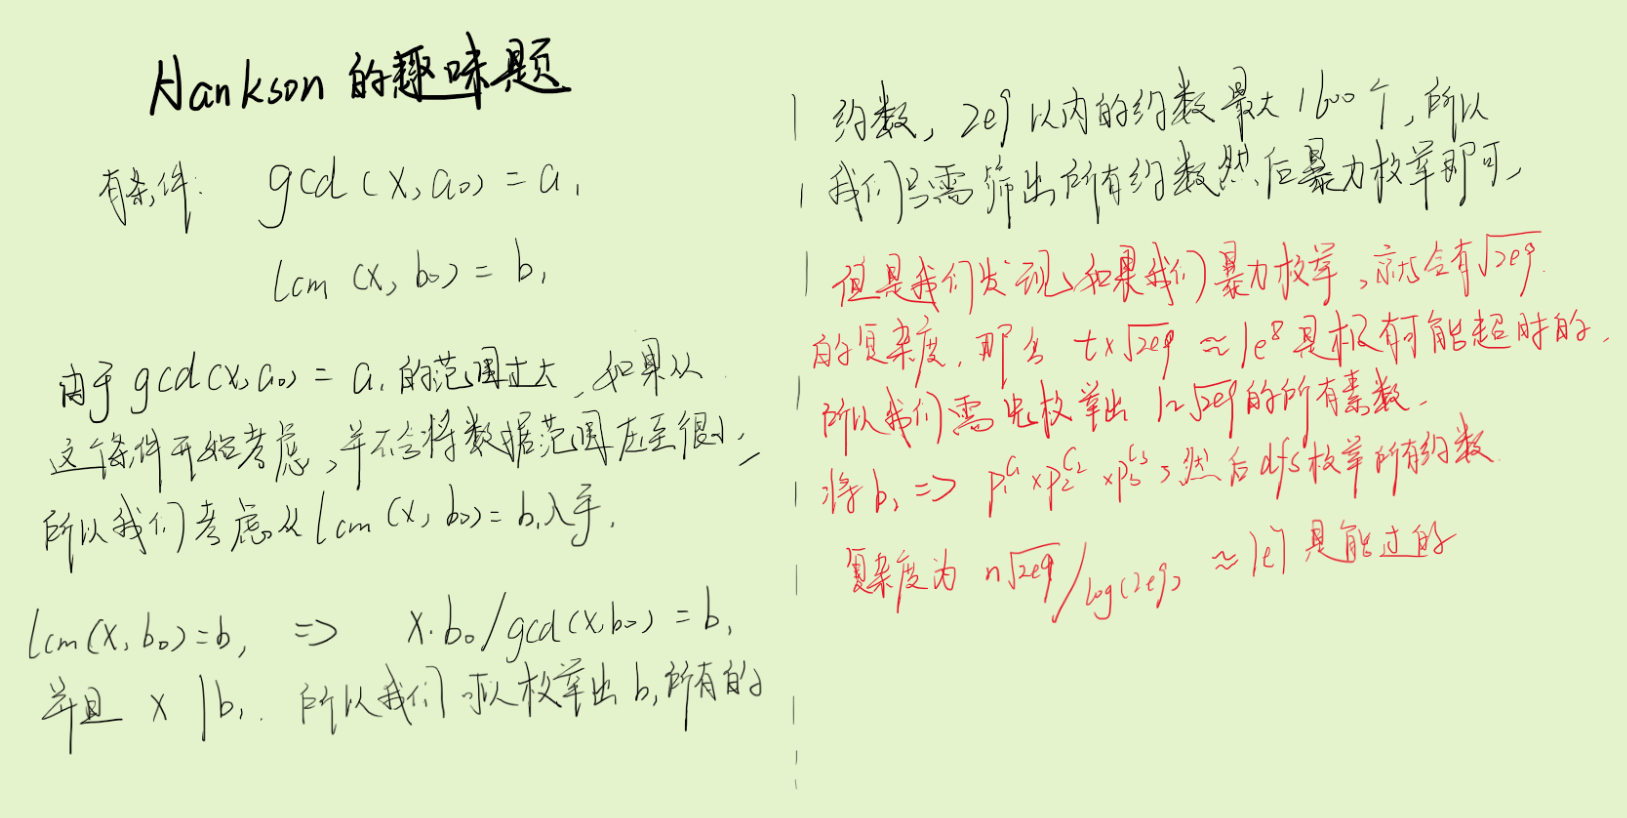 Hankson 的趣味题
有条件: gcd(x,a₀)=a₁
lcm(x,b₀)=b₁
由于 gcd(x,a₀)=a₁ 的范围过大, 如果从
这个条件开始考虑,并不会将数据范围压至很小,
所以我们考虑从 lcm(x,b₀)=b₁入手.
lcm(x,b₀)=b₁ => x·b₀/gcd(x,b₀)=b₁
并且 x|b₁. 所以我们可以枚举出 b₁所有的
约数, 2e9以内的约数最大1600个,所以
我们只需筛出所有约数然后暴力枚举即可,
但是我们发现,如果我们暴力枚举,就会有√2e9
的复杂度, 那么 t×√2e9 ≈ 1e8 是极有可能超时的,
所以我们需先枚举出 1~√2e9的所有素数.
将b₁ => p₁^c₁×p₂^c₂×p₃^c₃,然后dfs枚举所有约数
复杂度为 n√2e9/log(2e9) ≈1e7 是能过的